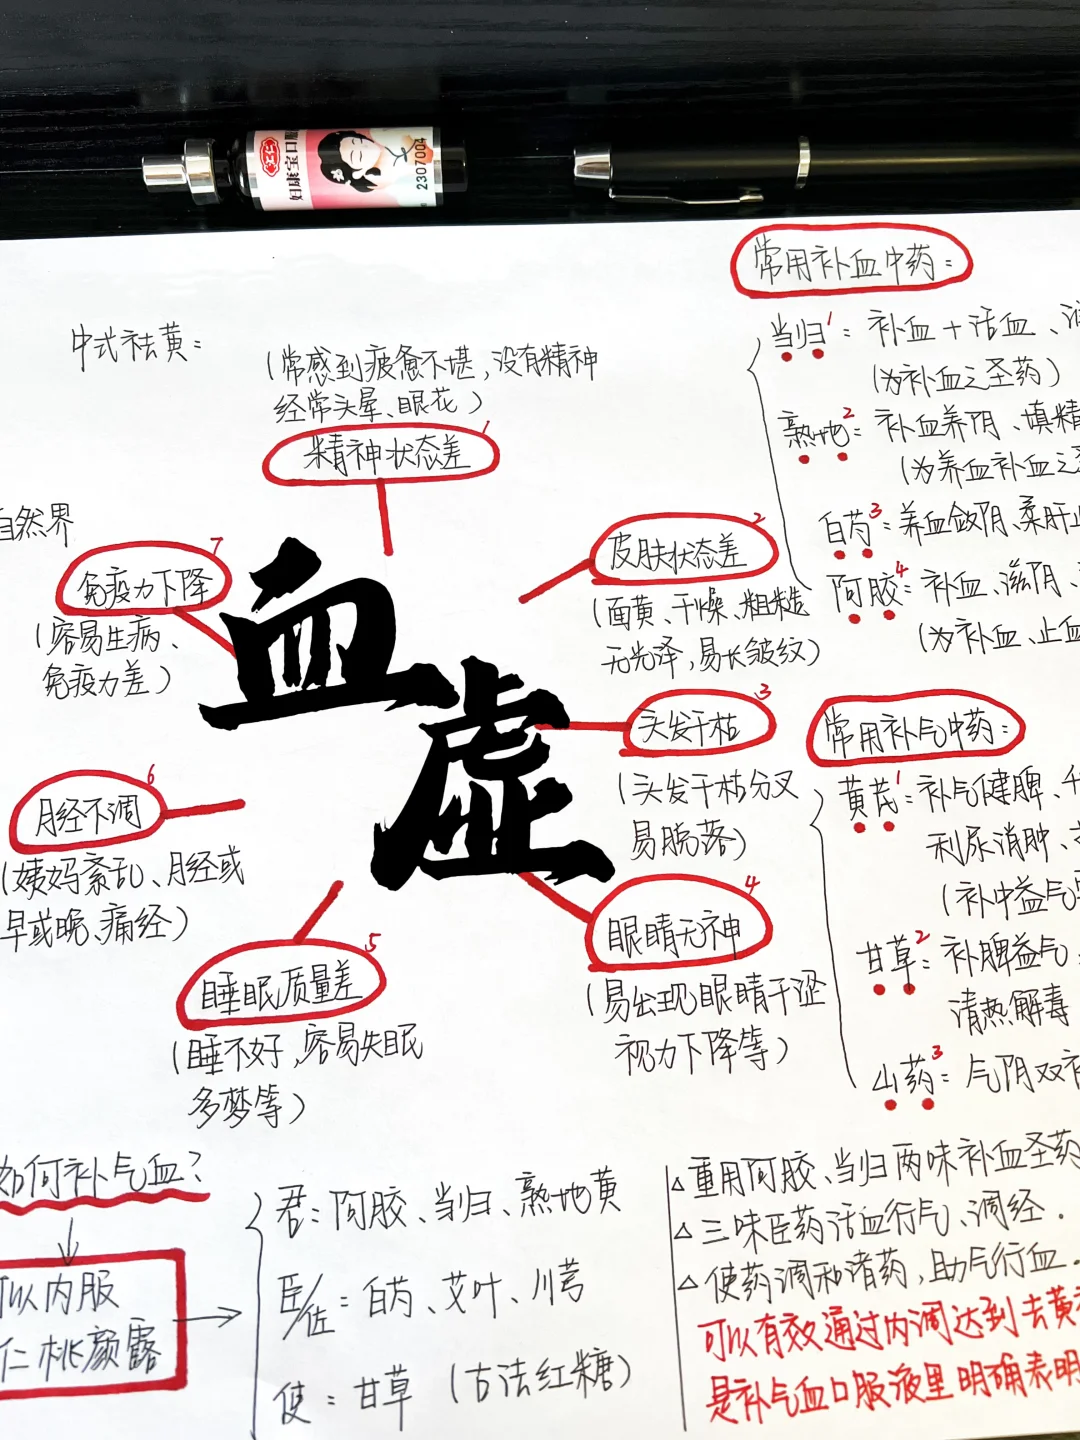 仁和
妇康宝口服
2307004
常用补血中药：
当归1：补血+活血、
（为补血之圣药）
熟地2：补血养阴、填精
（为养血补血之
白芍3：养血敛阴、柔肝
阿胶4：补血、滋阴、
（为补血、止血
中式祛黄：
（常感到疲惫不堪，没有精神
经常头晕、眼花）
精神状态差1
自然界
免疫力下降7
（容易生病、
免疫力差）
血虚
皮肤状态差2
（面黄、干燥、粗糙
无光泽，易长皱纹）
头发干枯3
（头发干枯分叉
易脱落）
眼睛无神4
（易出现眼睛干涩
视力下降等）
睡眠质量差5
（睡不好，容易失眠
多梦等）
月经不调6
（姨妈紊乱、月经或
早或晚、痛经）
常用补气中药：
黄芪1：补气健脾、
利尿消肿、
（补中益气
甘草2：补脾益气
清热解毒
山药3：气阴双补
如何补气血？
可以内服
仁桃颜露
君：阿胶、当归、熟地黄
臣/佐：白芍、艾叶、川芎
使：甘草（古法红糖）
△重用阿胶、当归两味补血圣药
△三味臣药活血行气、调经.
△使药调和诸药，助气行血.
可以有效通过内调达到去黄
是补气血口服液里明确表明